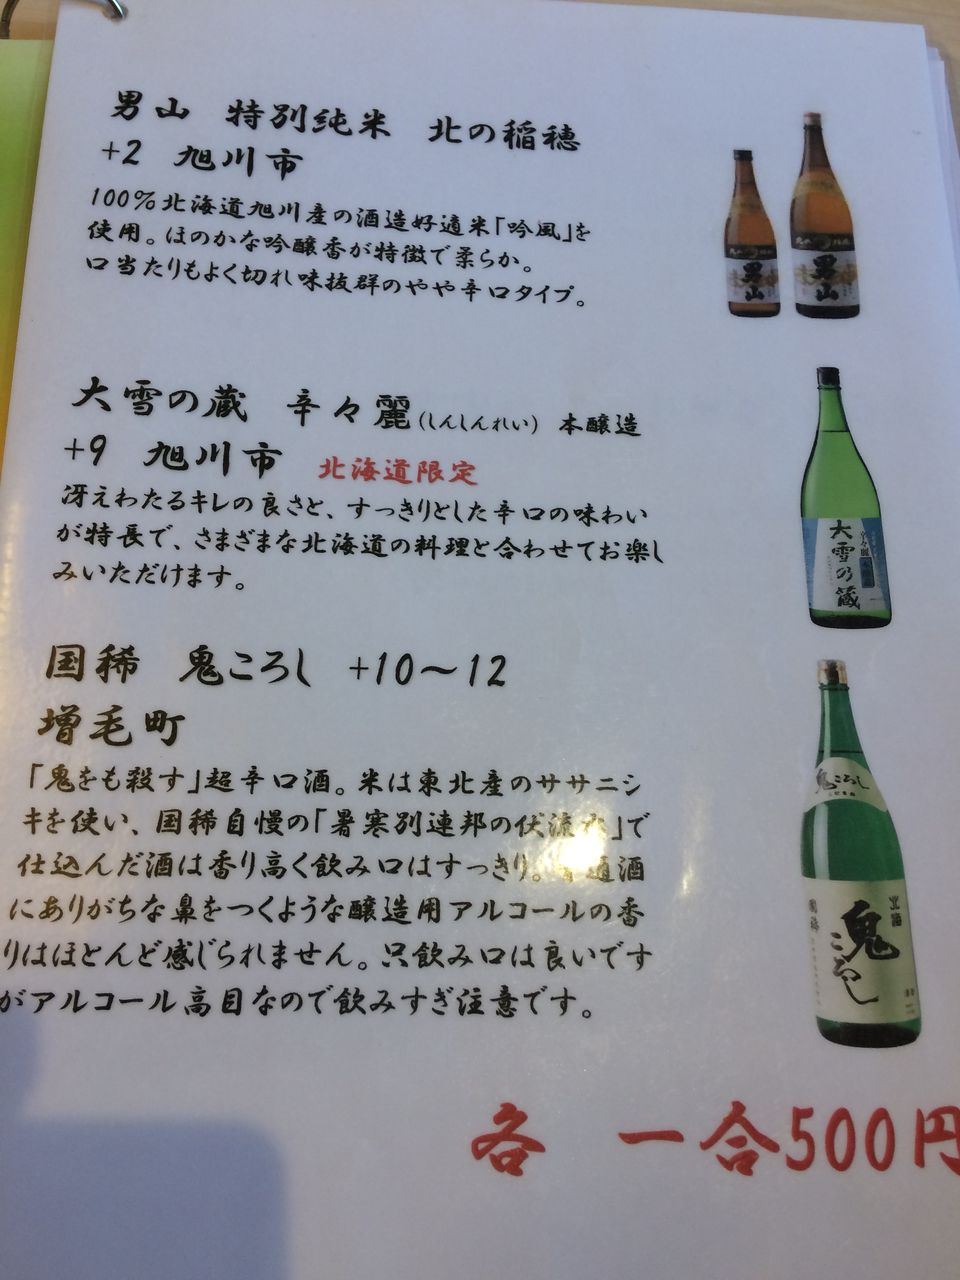 男山 特別純米 北の稲穂
+2 旭川市
100%北海道旭川産の酒造好適米「吟風」を
使用。ほのかな吟醸香が特徴で柔らか。
口当たりもよく切れ味抜群のやや辛口タイプ。
男山
男山
大雪の蔵 辛々麗(しんしんれい) 本醸造
+9 旭川市 北海道限定
冴えわたるキレの良さと、すっきりとした辛口の味わい
が特長で、さまざまな北海道の料理と合わせてお楽し
みいただけます。
大雪乃蔵
辛々麗
国稀 鬼ころし +10～12
増毛町
「鬼をも殺す」超辛口酒。米は東北産のササニシ
キを使い、国稀自慢の「暑寒別連邦の伏流水」で
仕込んだ酒は香り高く飲み口はすっきり。普通酒
にありがちな鼻をつくような醸造用アルコールの香
りはほとんど感じられません。只飲み口は良いです
がアルコール高目なので飲みすぎ注意です。
鬼ころし
北海
鬼ころし
國稀
各 一合500円